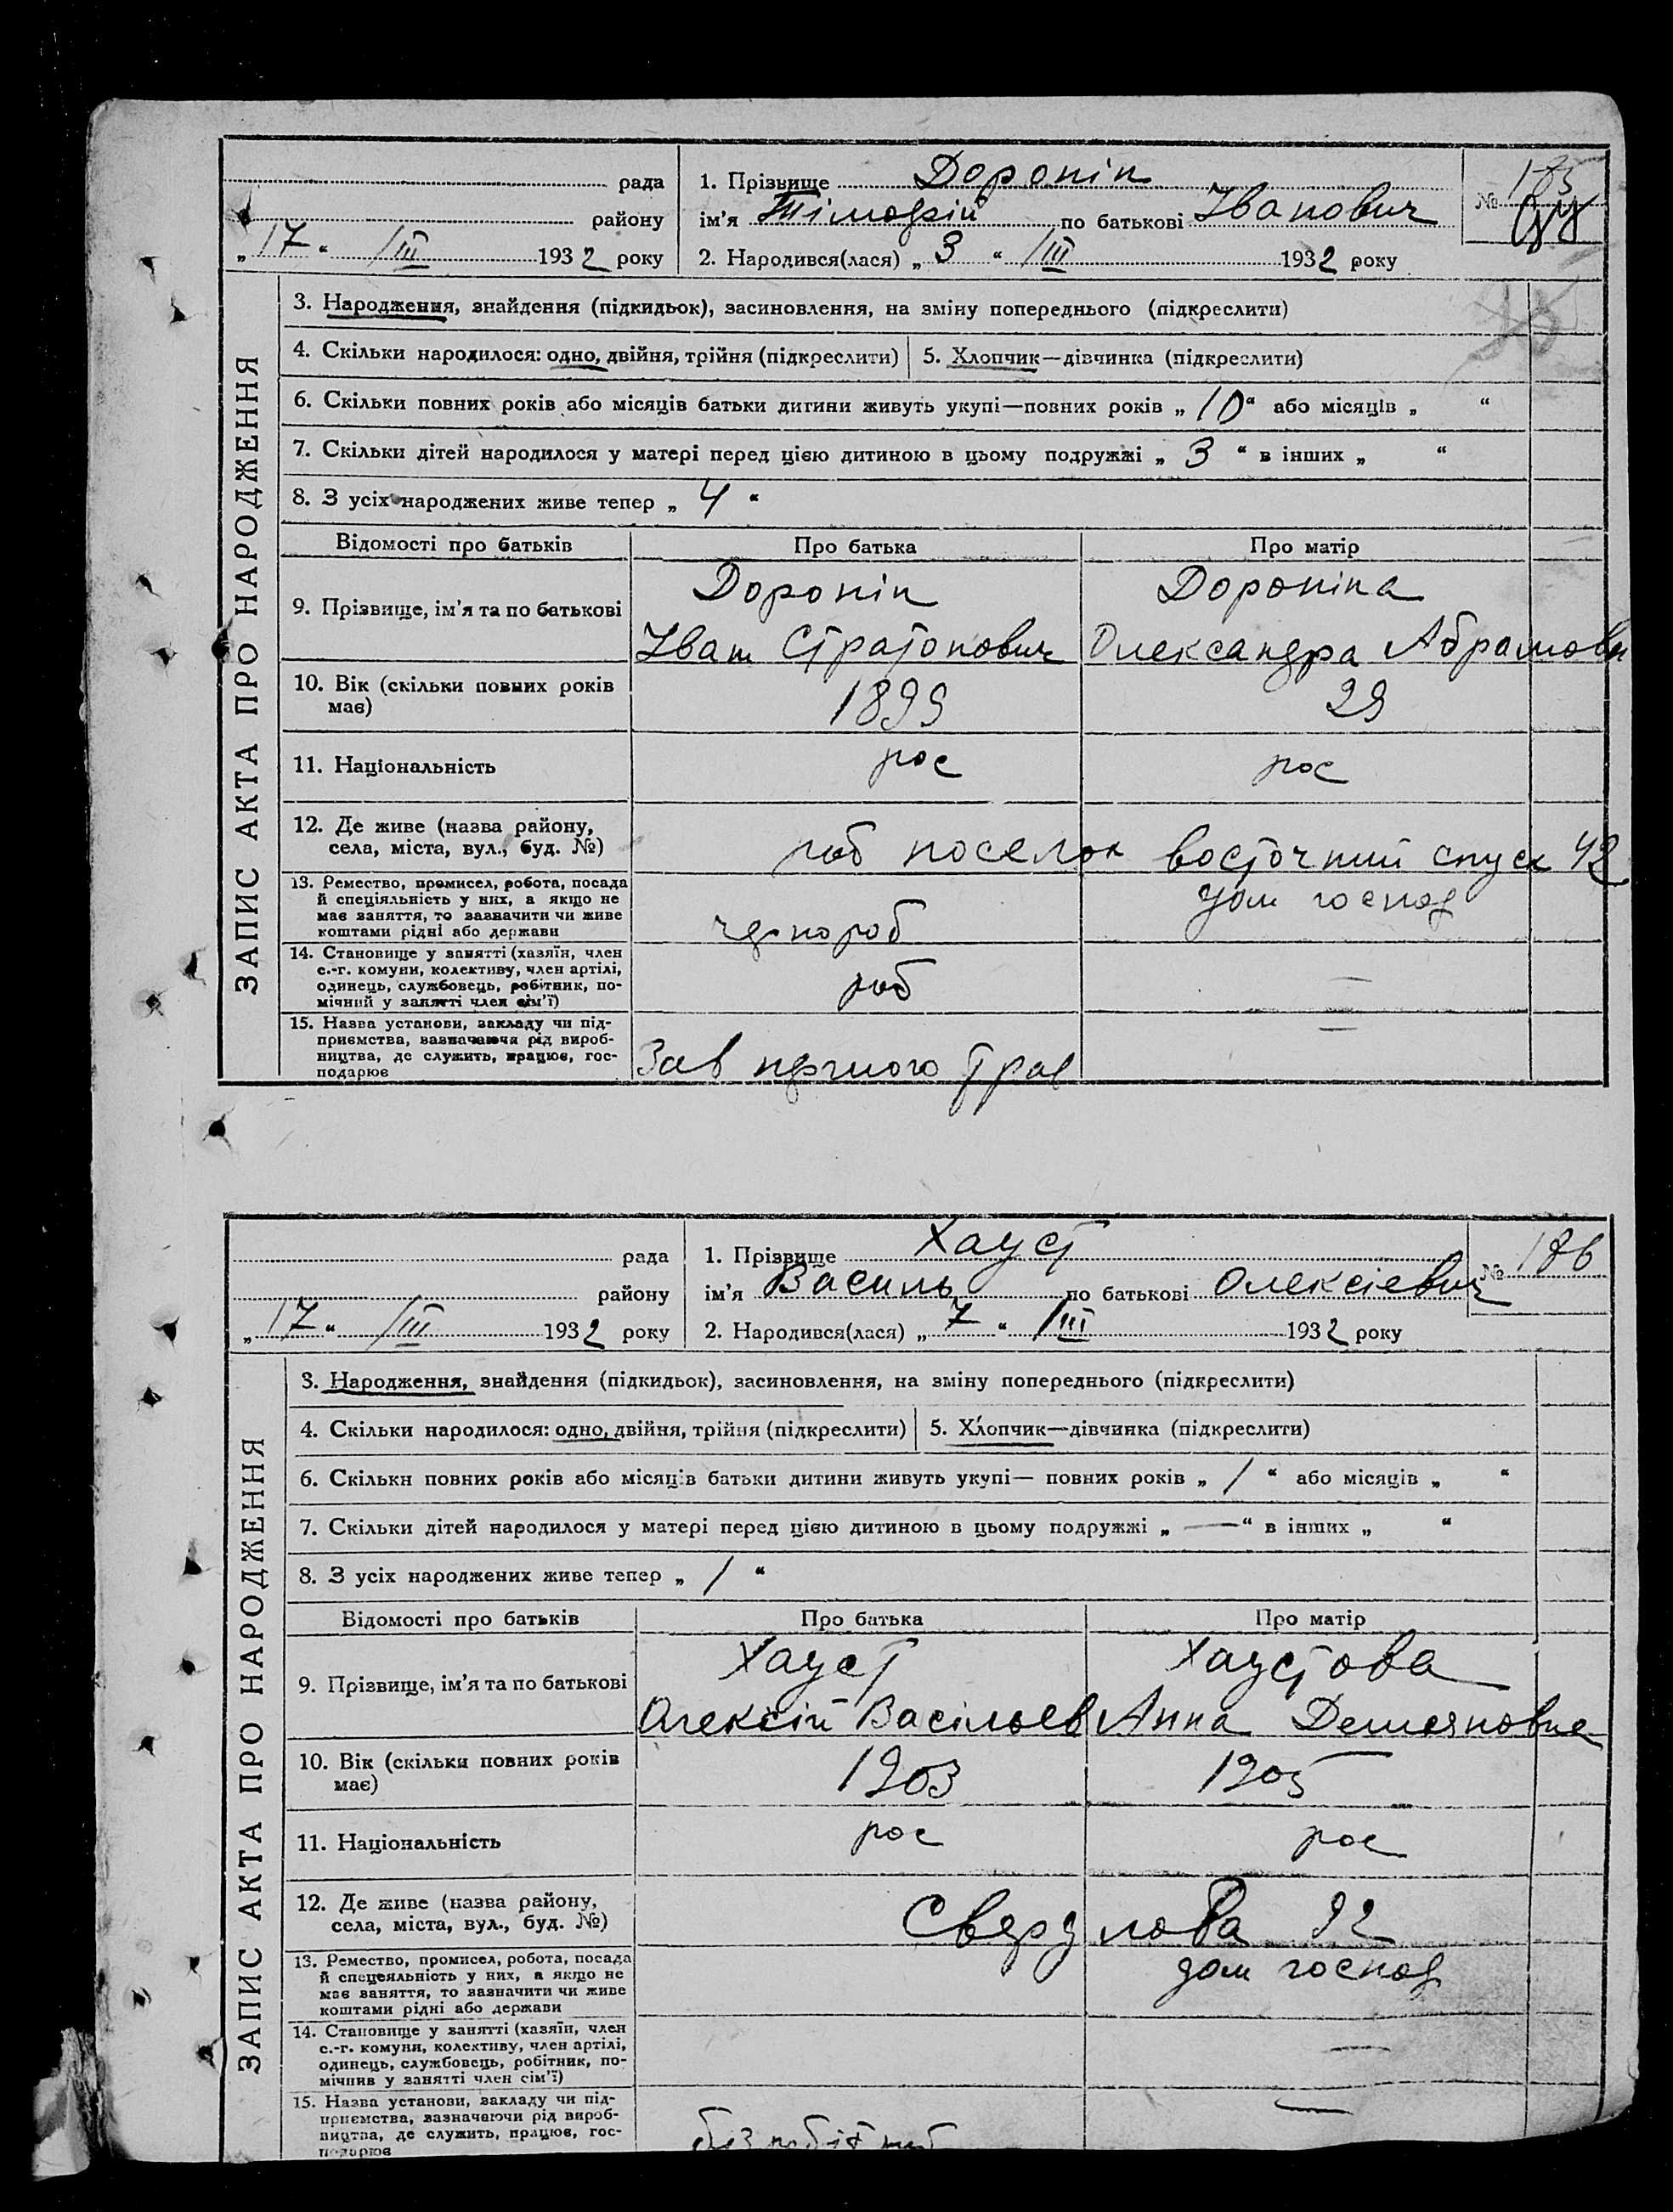 рада
району
„ 17 “ /III 1932 року
1. Прізвище Доронін
ім'я Тімофій по батькові Іванович
2. Народився(лася) „ 3 “ /III 1932 року
№ 185
ЗАПИС АКТА ПРО НАРОДЖЕННЯ
3. Народження, знайдення (підкидьок), засиновлення, на зміну попереднього (підкреслити)
4. Скільки народилося: одно, двійня, трійня (підкреслити) 5. Хлопчик—дівчинка (підкреслити)
6. Скільки повних років або місяців батьки дитини живуть укупі—повних років „ 10 “ або місяців „ “
7. Скільки дітей народилося у матері перед цією дитиною в цьому подружжі „ 3 “ в інших „ “
8. З усіх народжених живе тепер „ 4 “
Відомості про батьків Про батька Про матір
9. Прізвище, ім'я та по батькові
Доронін
Іван Стратонович
Дороніна
Олександра Абрамовн
10. Вік (скільки повних років
має)
1899
29
11. Національність
рос
рос
12. Де живе (назва району,
села, міста, вул., буд. №)
роб поселок восточний спуск 42
13. Ремество, промисел, робота, посада
й спеціяльність у них, а якщо не
має заняття, то зазначити чи живе
коштами рідні або держави
чернороб
дом господ
14. Становище у занятті (хазяїн, член
с.-г. комуни, колективу, член артілі,
одинець, службовець, робітник, по-
мічний у занятті член сім'ї)
роб
—
15. Назва установи, закладу чи під-
приємства, зазначаючи рід вироб-
ництва, де служить, працює, гос-
подарює
Зав першого трав
—
рада
району
„ 17 “ /III 1932 року
1. Прізвище Хауст
ім'я Василь по батькові Олексієвич
2. Народився(лася) „ 7 “ /III 1932 року
№ 186
ЗАПИС АКТА ПРО НАРОДЖЕННЯ
3. Народження, знайдення (підкидьок), засиновлення, на зміну попереднього (підкреслити)
4. Скільки народилося: одно, двійня, трійня (підкреслити) 5. Хлопчик—дівчинка (підкреслити)
6. Скільки повних років або місяців батьки дитини живуть укупі— повних років „ 1 “ або місяців „ “
7. Скільки дітей народилося у матері перед цією дитиною в цьому подружжі „ — “ в інших „ “
8. З усіх народжених живе тепер „ 1 “
Відомості про батьків Про батька Про матір
9. Прізвище, ім'я та по батькові
Хауст
Олексій Васільев
Хаустова
Анна Демяновна
10. Вік (скільки повних років
має)
1903
1905
11. Національність
рос
рос
12. Де живе (назва району,
села, міста, вул., буд. №)
Свердлова 22
13. Ремество, промисел, робота, посада
й спецеяльність у них, а якщо не
має заняття, то зазначити чи живе
коштами рідні або держави
дом господ
14. Становище у занятті (хазяїн, член
с.-г. комуни, колективу, член артілі,
одинець, службовець, робітник, по-
мічнив у занятті член сім'ї)
—
15. Назва установи, закладу чи під-
приємства, зазначаючи рід вироб-
ництва, де служить, працює, гос-
подарює
—